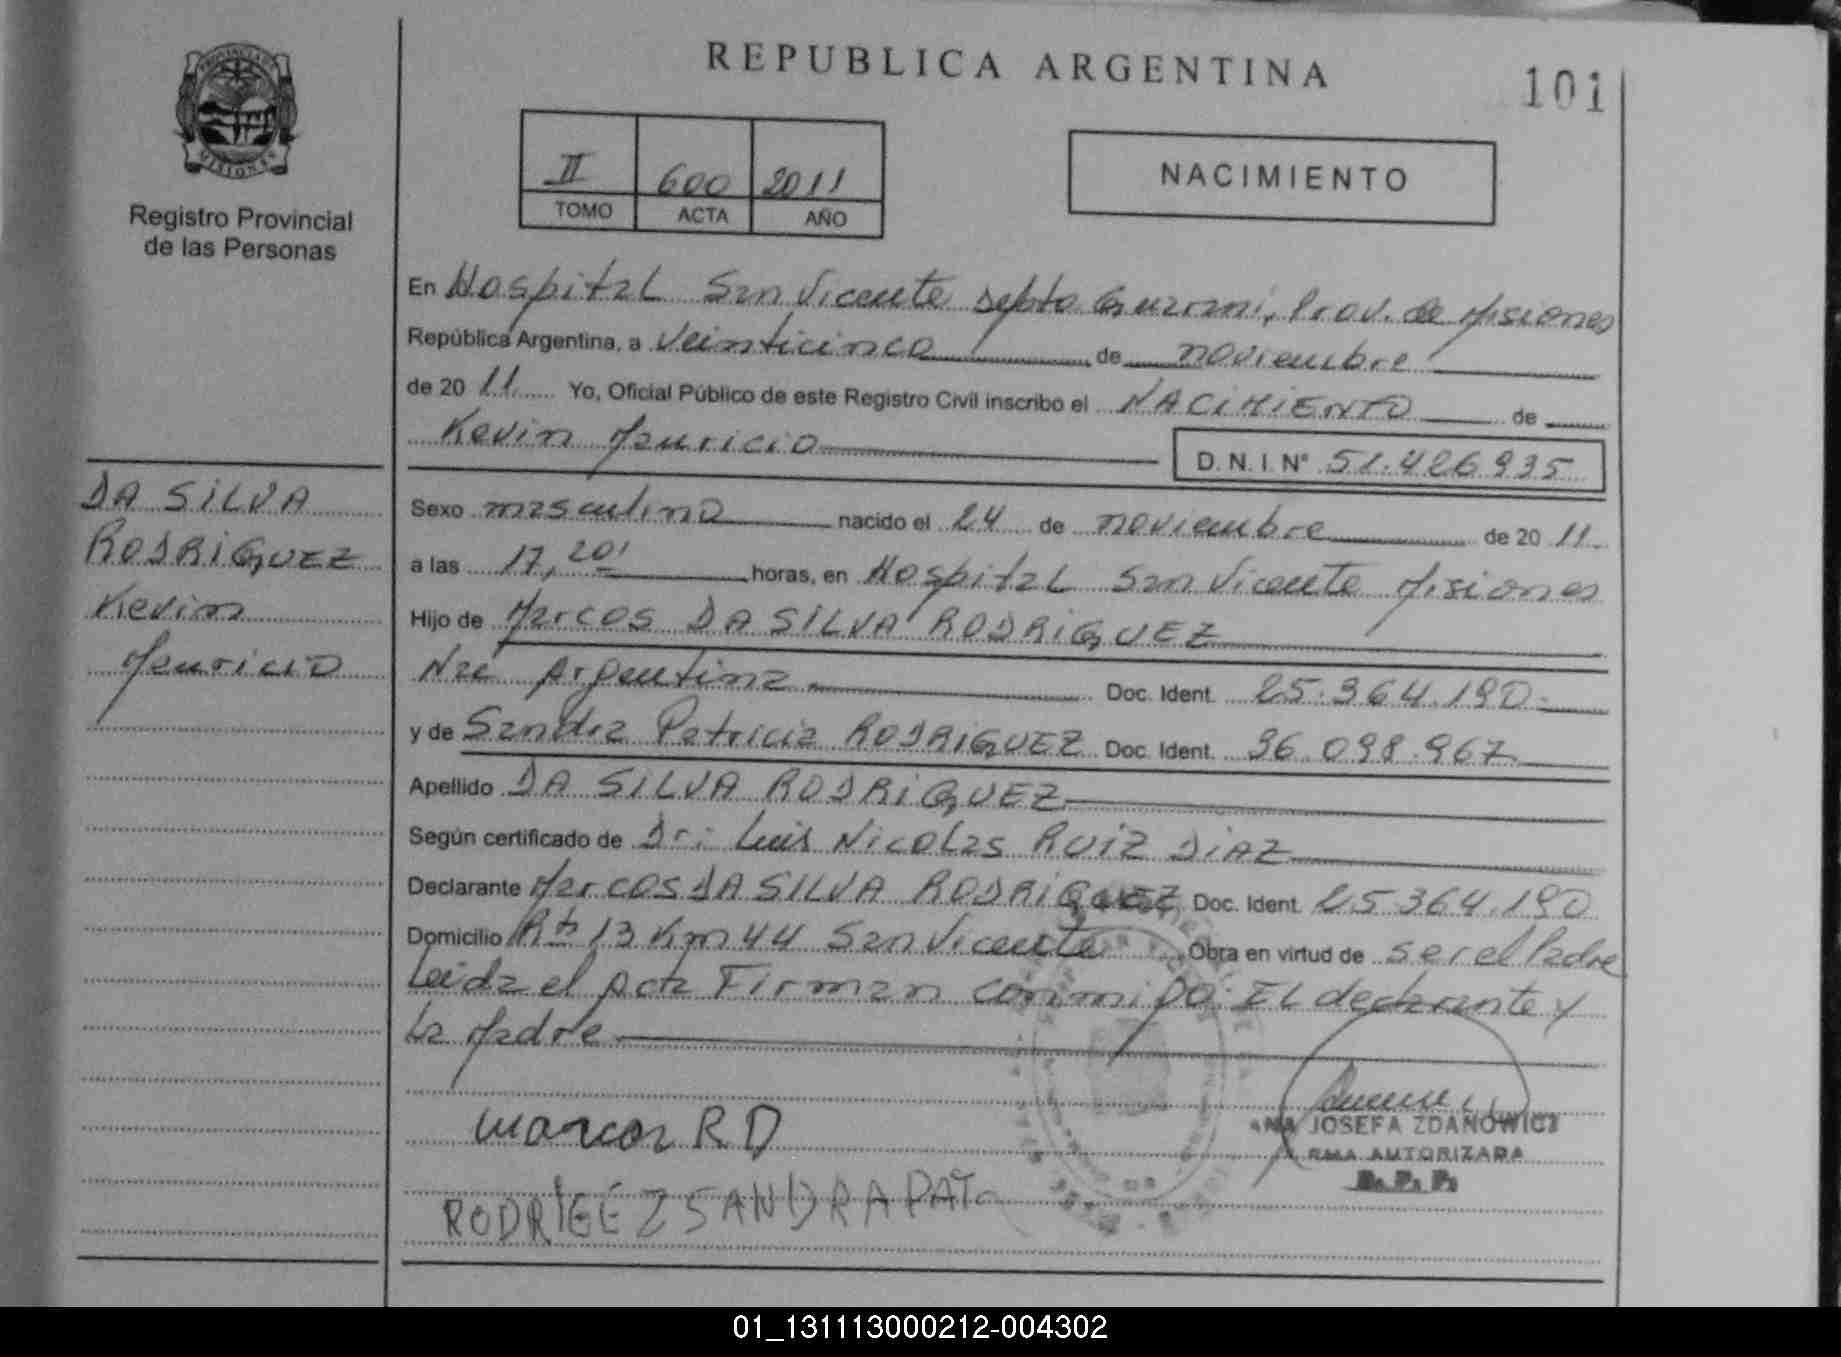 REPUBLICA ARGENTINA
101
PROVINCIA DE
MISIONES
Registro Provincial
de las Personas
II 600 2011
TOMO ACTA AÑO
NACIMIENTO
En Hospital San Vicente Depto Guarani, Prov. de Misiones
República Argentina, a veinticinco de noviembre
de 20 11 Yo, Oficial Público de este Registro Civil inscribo el NACIMIENTO de
Kevin Mauricio
D.N.I.N° 51.426.935
DA SILVA
RODRIGUEZ
Kevin
Mauricio
Sexo masculino nacido el 24 de noviembre de 20 11.
a las 17,20' horas, en Hospital San Vicente Misiones
Hijo de Marcos DA SILVA RODRIGUEZ
Nac Argentina Doc. Ident. 25.364.190.
y de Sandra Patricia RODRIGUEZ Doc. Ident. 36.098.967
Apellido DA SILVA RODRIGUEZ
Según certificado de Dr: Luis Nicolas RUIZ DIAZ
Declarante Marcos DA SILVA RODRIGUEZ Doc. Ident. 25.364.190
Domicilio Rta 13 Km 44 San Vicente Obra en virtud de ser el Padre
Leida el Acta Firman conmigo: EL declarante y
La Madre
Marcos R D
ANA JOSEFA ZDANOWICZ
FIRMA AUTORIZADA
R. P. P.
RODRIGEZ SANDRA PAT
01_131113000212-004302